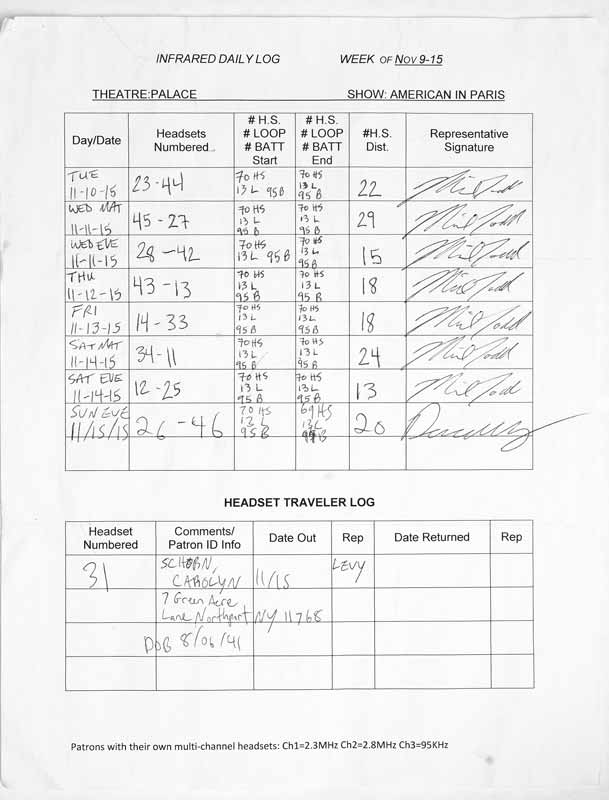 INFRARED DAILY LOG WEEK OF NOV 9-15
THEATRE:PALACE SHOW: AMERICAN IN PARIS
Day/Date Headsets Numbered # H.S. # LOOP # BATT Start # H.S. # LOOP # BATT End #H.S. Dist. Representative Signature
TUE 11-10-15 23-44 70 HS 13 L 95B 70 HS 13 L 95 B 22
WED MAT 11-11-15 45-27 70 HS 13 L 95 B 70 HS 13 L 95 B 29
WED EVE 11-11-15 28-42 70 HS 13 L 95 B 70 HS 13 L 95 B 15
THU 11-12-15 43-13 70 HS 13 L 95 B 70 HS 13 L 95 B 18
FRI 11-13-15 14-33 70 HS 13 L 95 B 70 HS 13 L 95 B 18
SAT MAT 11-14-15 34-11 70 HS 13 L 95 B 70 HS 13 L 95 B 24
SAT EVE 11-14-15 12-25 70 HS 13 L 95 B 70 HS 13 L 95 B 13
SUN EVE 11/15/15 26-46 70 HS 13 L 95 B 69 HS 13L 95 B 20
HEADSET TRAVELER LOG
Headset Numbered Comments/ Patron ID Info Date Out Rep Date Returned Rep
31 SCHORN, CAROLYN 11/15 LEVY
7 Green Acre
Lane Northport NY 11768
DOB 8/06/41
Patrons with their own multi-channel headsets: Ch1=2.3MHz Ch2=2.8MHz Ch3=95KHz